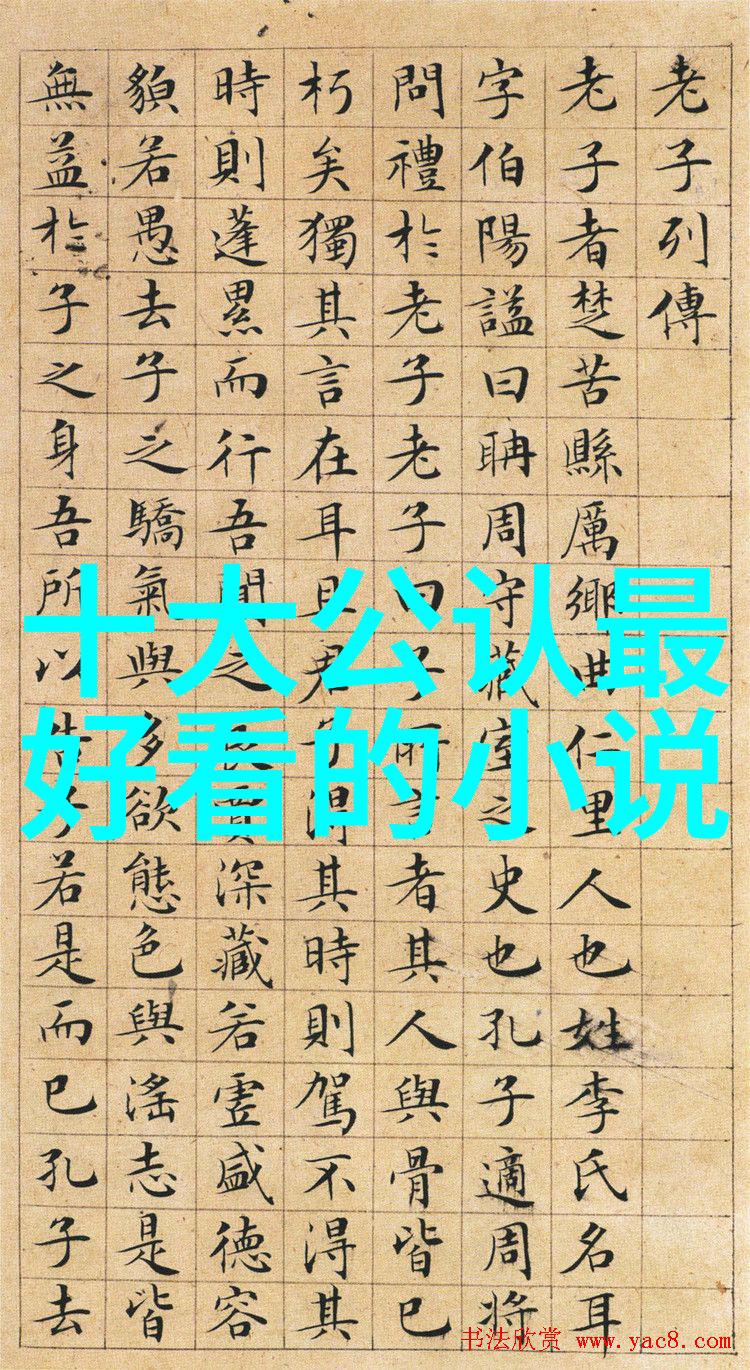 老子列傳
老子者楚苦縣厲鄉曲仁里人也姓李氏名耳
字伯陽謚曰耼周守藏室之史也孔子適周將
問禮於老子老子曰子所言者其人與骨皆已
朽矣獨其言在耳且君子淂其時則駕不淂其
時則蓬累而行吾聞之良賈深藏若虛盛德容
貌若愚去子之驕氣與多欲態色與淫志是皆
無益於子之身吾所以告子若是而已孔子去
十大公认最
好看的小说
书法欣赏 www.yac8.com